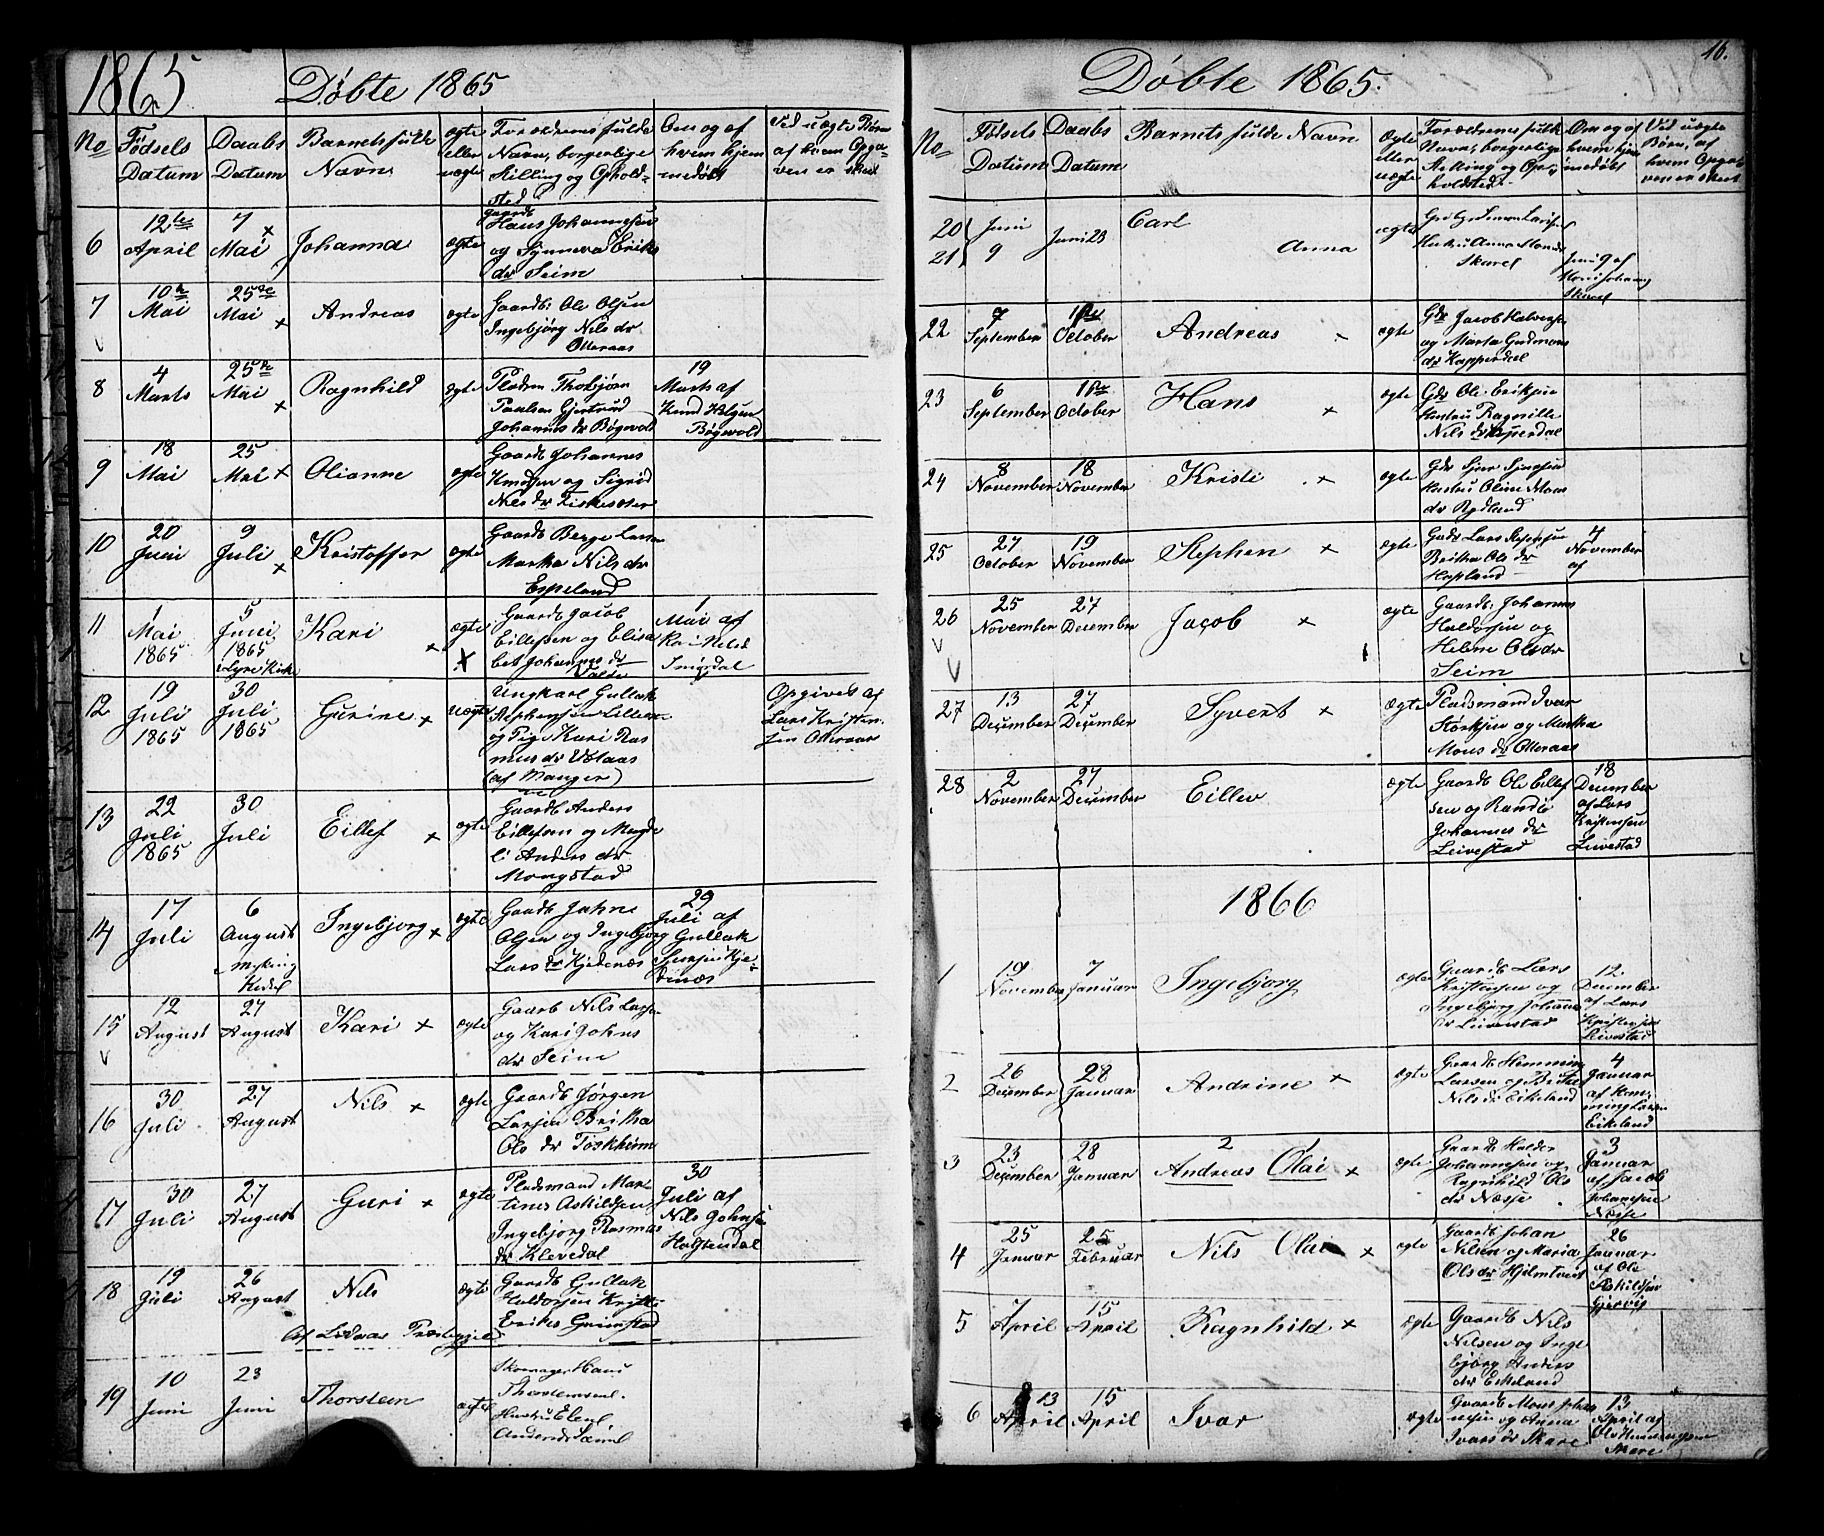 1865
Döbte 1865
No
Födsels Datum
Daabs Datum
Barnets fulde Navn
ægte eller uægte
Forældrenes fulde Navn, borgerlige Stilling og Opholdsted
Om og af hvem hjemmedöbt
Ved uægte Börn af hvem Opgaven er skeet
6
12te April
7 Mai x
Johanna
ægte
Gaardb
Hans Johannesen
og Synneva Eriks
dr Seim
7
10de Mai
25de Mai x
Andreas
ægte
Gaardb: Ole Olsen
Ingebjörg Nils dr
Otteraas
8
4 Marts
25de Mai x
Ragnhild
ægte
Pladsm Thorbjörn
Paulsen Gjertrud
Johannes dr Bögevold
19
Marts af
Knud Helgesen
Bögevold
9
18 Mai
25 Mai x
Olianne
ægte
Gaardb Johannes
Knudsen og Sigrid
Nils dr Fiskesæter
10
20 Juni
9 Juli x
Kristoffer
ægte
Gaardb Berge Larsen
Martha Nils dr
Espeland
11
1 Mai 1865
5 Juni 1865
i Lyre Kirke
Kari x
ægte
X
Gaardb Jacob
Eillefsen og Elisa
bet Johannes dr
1
Mai af
12
19 Juli 1865
30 Juli 1865
Gurine x
uægte
Ungkarl Gullak
og Pige Kari Ras
mus dr
(af Manger)
Opgivet af
Lars Kristen
sen Otteraas
13
22 Juli 1865
30 Juli
Eillef x
ægte
Gaardb Anders
Eillefsen og Magde
li Anders dr
Mongstad
14
17 Juli
6 August
Ingebjorg x
ægte
Gaardb Jahne
Olsen og Ingebjorg
Lars dr Kjedenæs
29
Juli af
Gullak
15
12 August
27 August
Kari x
ægte
Gaarb Nils Larsen
og Kari Johns
dr Seim
16
30 Juli
27 August
Nils x
ægte
Gaardb Jörgen
Larsen Britha
Ols dr Foskheim
17
30 Juli
27 August
Guri x
ægte
Pladsmand Mar
tines Askildsen
Ingebjorg Rasmus
dr Klevedal
30
Juli af
Nils Johnsen
Halstendal
18
19 Juli
26 August
Nils
ægte
Gaardb Gullak
Haldorsen Kristi
Eriks Grimstad
Af Lodvaas Præstegjeld
19
10 Juni
23 Juni
Thorstein
ægte
Skomager Hans
Thorsteinsen
Hustru Elen
Anders dr
16.
Döbte 1865.
No
Födsels Datum
Daabs Datum
Barnets fulde Navn
Ægte eller uægte
Forældrenes fulde Navn, borgerlige Stilling og Opholdsted
Om og af hvem hjemmedöbt
Ved uægte Börn, af hvem Opgaven er skeet
20
21
Juni 9
Juni 23
Carl
Anna
ægte
Hustru Anna Mons dr
Skaret
Juni 9 af
Skaret
22
7 September
October
Andreas x
ægte
Gdr Jacob Halvorsen
og Marta Gudmons
dr Kopperdal
23
6 September
October
Hans x
ægte
Gdr Ole Eriksen
Hustru Ragnille
Nils dr Kopperdal
24
8 November
18 November
Kristi x
ægte
Gdr Sjur Sjursen
Hustru Oline Mons
dr Rydland
25
27 October
19 November
Stephen x
ægte
Gdr Lars Stephensen
Britha Ols dr
Hopland
4
November
af
26
25 November
27 Desember
Jacob x
ægte
Gaardb: Johannes
Haldorsen og
Helene Olsdr
Seim
27
13 Desember
27 Desember
Syvert x
Ægte
Pladsmand Ivar
Störksen og Martha
Mons dr Otteraas
28
2 November
27 Desember
Eillev
ægte
Gaardb Ole Eillef
sen og Randi
Johannes dr
Leivestad
18
Desember
af Lars
Kristensen
Leivestad
1866
1
19 November
7 Januar
Ingebjorg
ægte
Gaardb Lars
Kristensen og
Ingebjorg Johannes
dr Leivestad
12
Desember
af Lars
Kristensen
Leivestad
2
26 Desember
28 Januar
Andrine x
ægte
Gaardb Hemming
Larsen og Britha
Nils dr Eikeland
4
Januar
af Hem
ming Larsen
Eikeland
3
23 Desember
28 Januar
2 1
Andreas Olai x
ægte
Gaardb Haldor
Johannesen og
Ragnhild Ols
dr Næsse
3
Januar
af Jacob
Johannesen
Næsse
4
25 Januar
25 Februar
Nils Olai x
ægte
Gaardb Johan
Nilsen og Maria
Ols dr Hjelmtveit
26
Januar
af Ole
Askildsen
Gjervig
5
7 April
15 April
Ragnhild x
ægte
Gaardb Nils
Nilsen og Inge
björg Anders
dr Eikeland
6
13 April
15 April
Ivar
ægte
Gaardb Mons Johan
nesen og Anna
Ivars dr Skare
13
April af
Skare